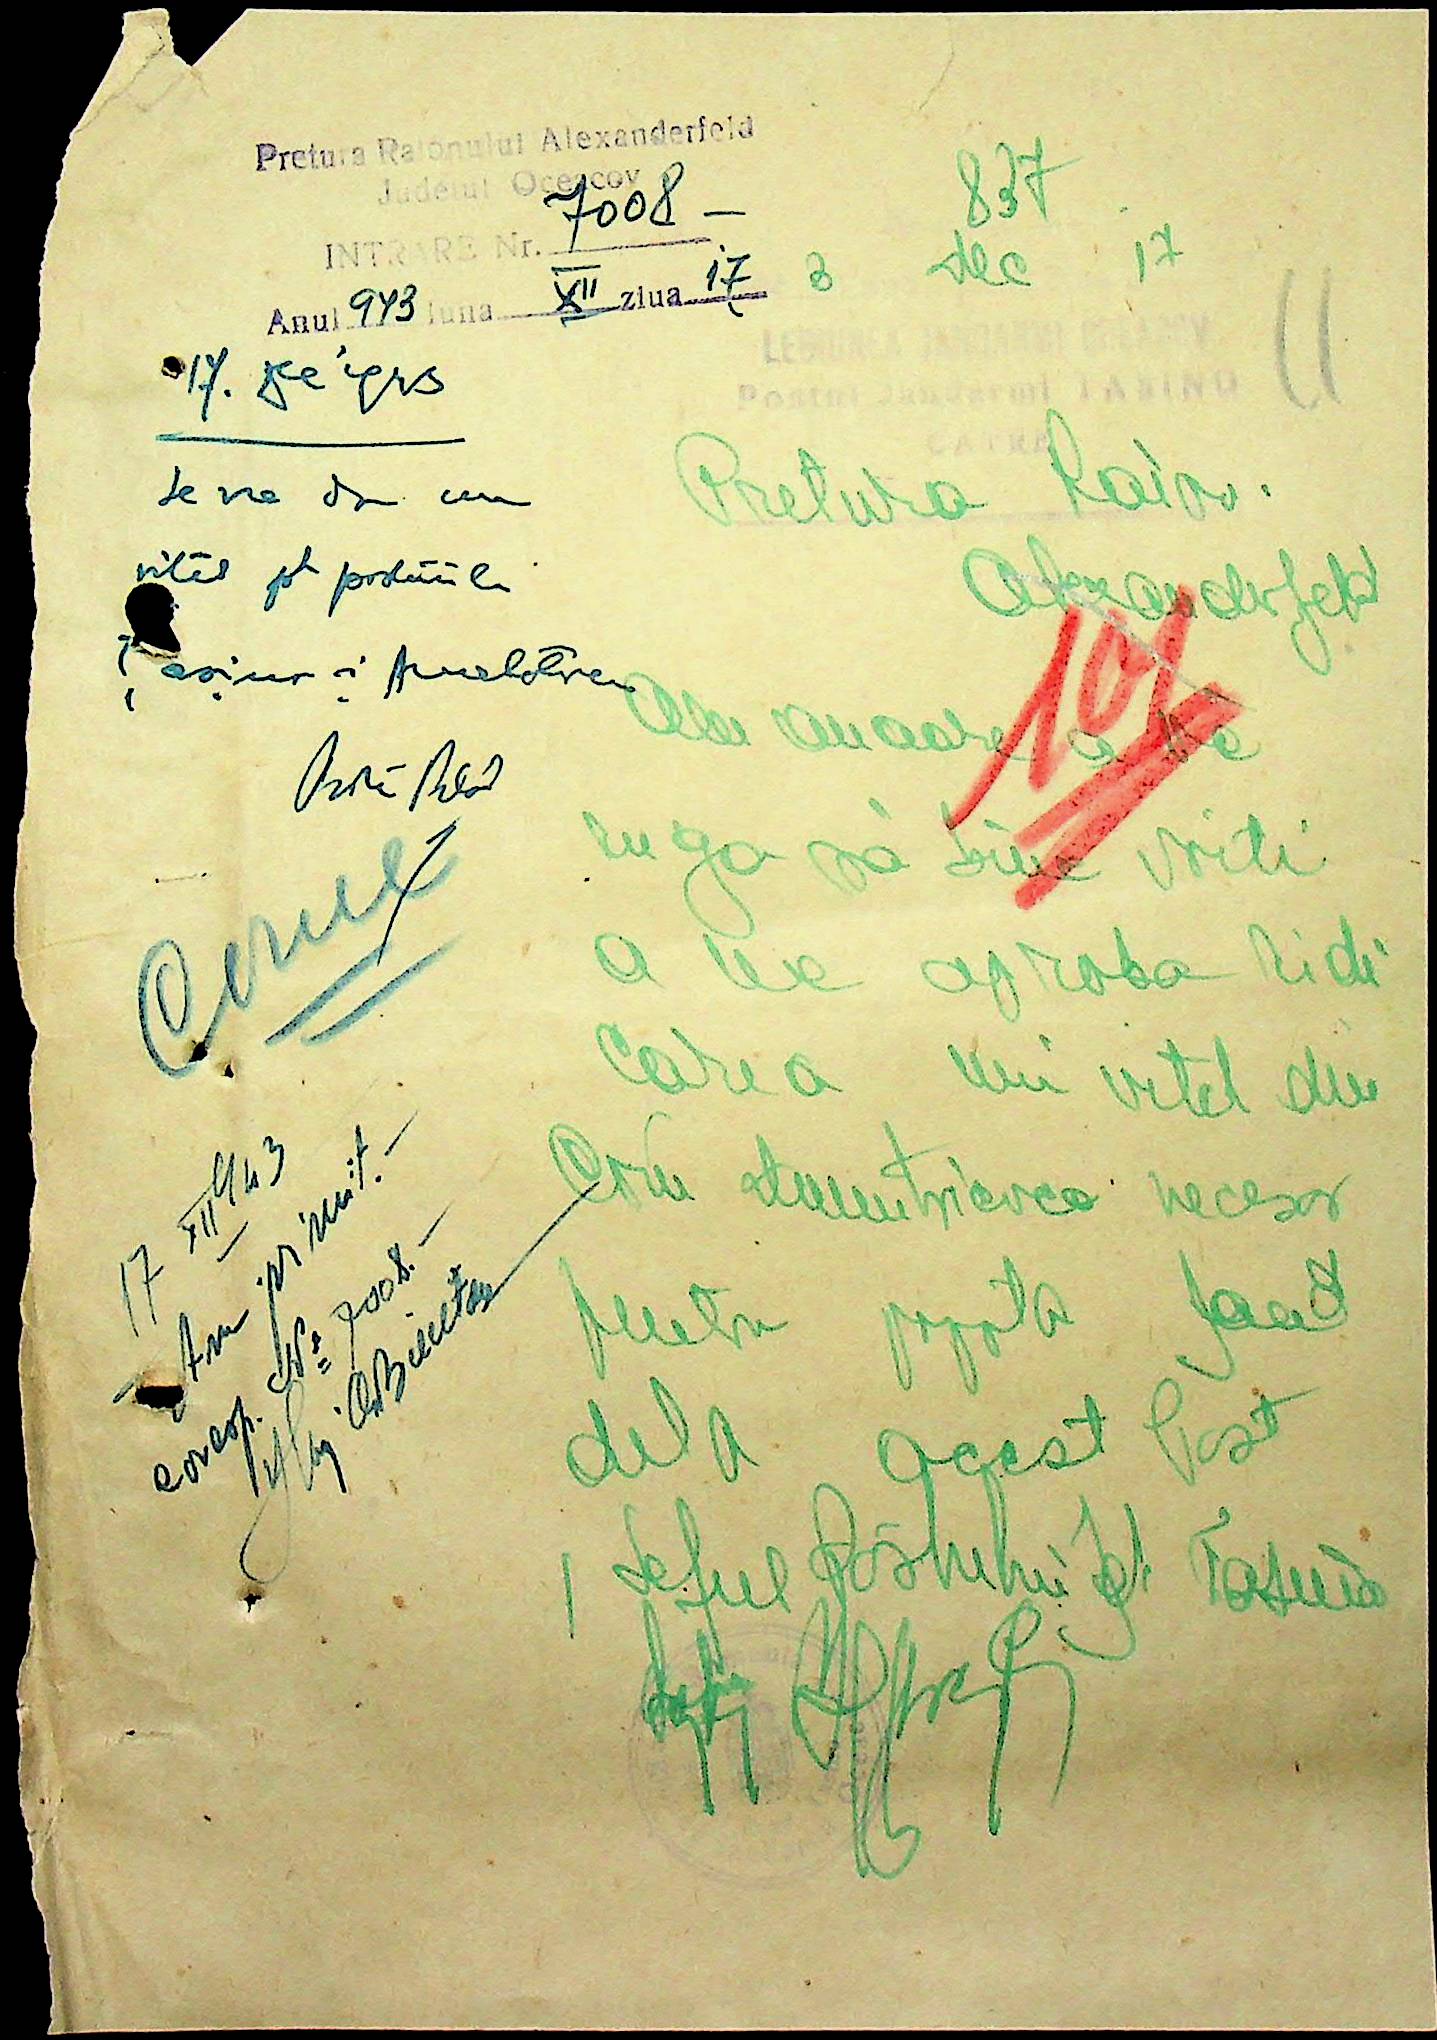 Pretura Raionului Alexanderfeld
Judetul Oceacov
INTRARE Nr. 7008 –
Anul 943 luna XII ziua 17
837
3 Dec 17
LEGIUNEA JANDARMI OCEACOV
Postul Jandarmi TASINO
CATRE
Pretura Raion.
Alexanderfeld
Am onoare a Vă
ruga să bine voiti
a ne aproba ridi
carea unui vitel din
Com Dumitrievca necesar
pentru popota Jand
dela acest Post
Seful Postului Jd. Tasino
101
17.
Se va da un
vitel pt posturile
Cerut
17 XII 943
Am primit.–
coresp. Nr 7008.–